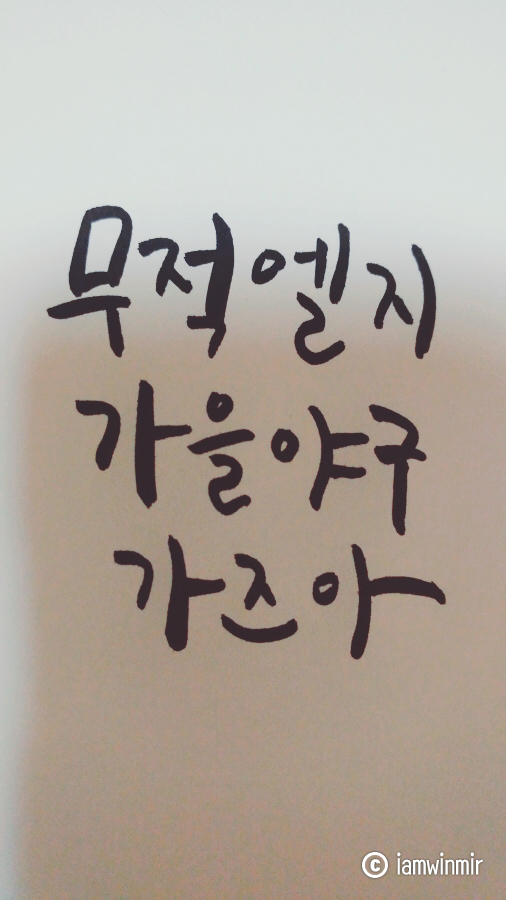 무적엘지
가을야구
가즈아
© iamwinmir